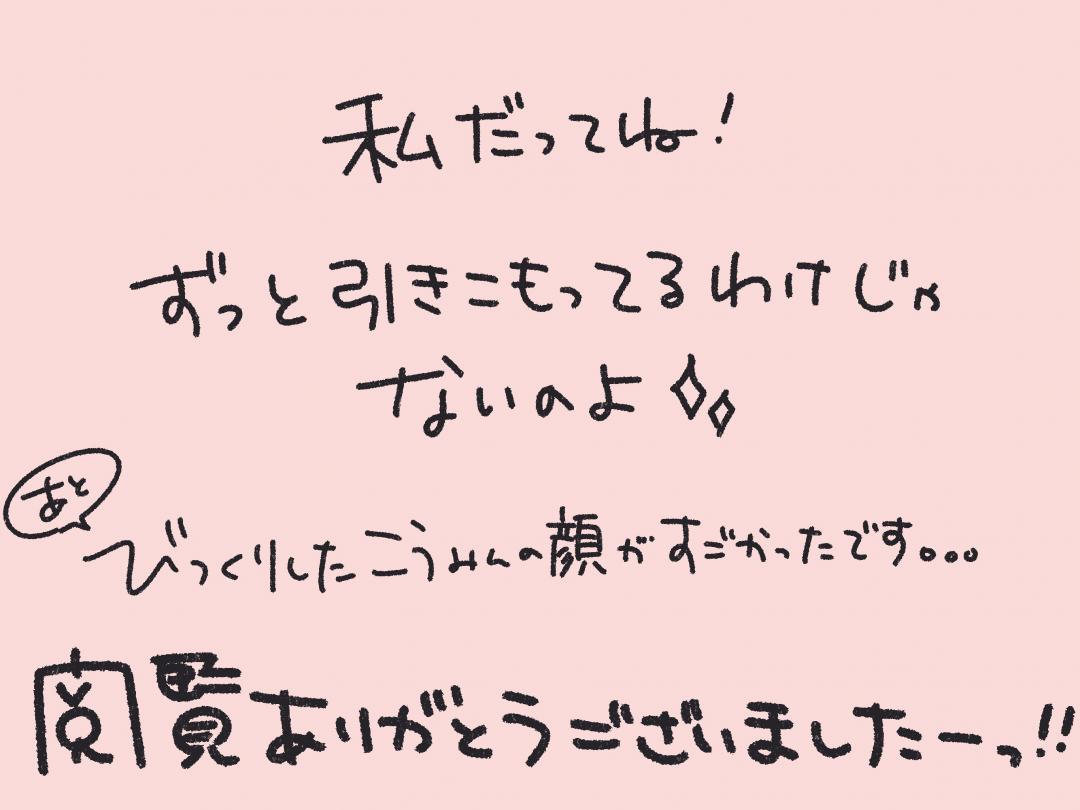 私だってね!
ずっと引きこもってるわけじゃ
ないのよ
あと
びっくりしたこうみんの顔がすごかったです。。。
閲覧ありがとうございましたーっ!!